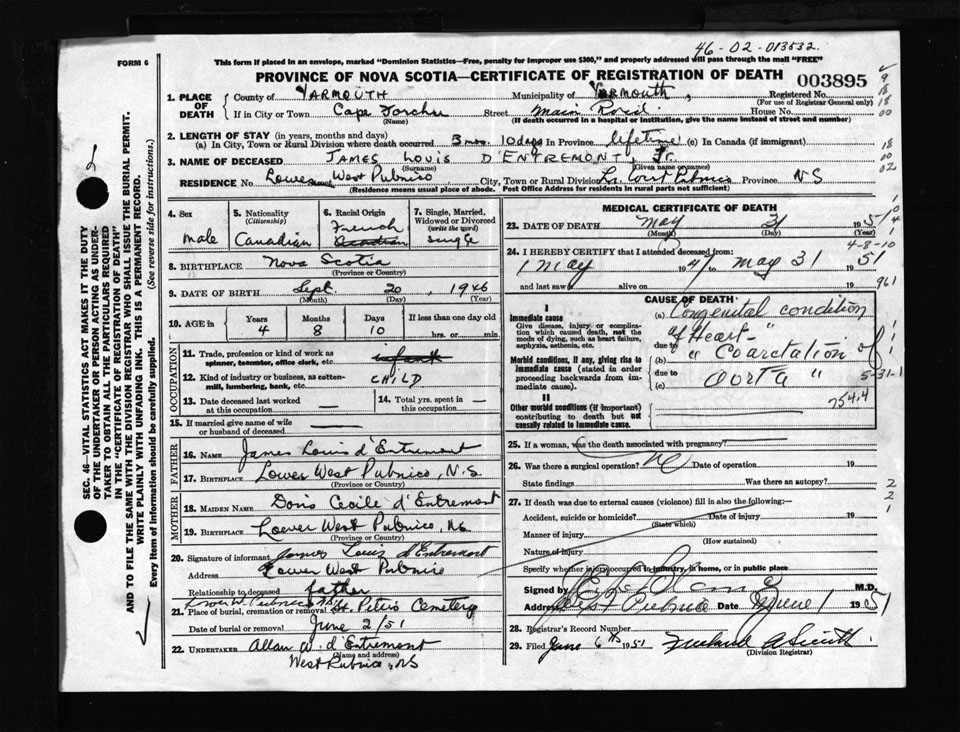 46-02-013532.
FORM 6
This form if placed in an envelope, marked "Dominion Statistics—Free, penalty for improper use $300," and properly addressed will pass through the mail "FREE"
PROVINCE OF NOVA SCOTIA—CERTIFICATE OF REGISTRATION OF DEATH 003895
1. PLACE OF DEATH
County of YARMOUTH Municipality of YARMOUTH, Registered No.
(For use of Registrar General only)
If in City or Town Cape Forchu Street Main Road House No.
(Name) (If death occurred in a hospital or institution, give the name instead of street and number)
2. LENGTH OF STAY (in years, months and days)
(a) In City, Town or Rural Division where death occurred 3 mos. 10 days In Province lifetime (c) In Canada (if immigrant)
3. NAME OF DECEASED JAMES LOUIS D'ENTREMONT, Jr.
(Surname) (Given name or names)
RESIDENCE No. Lower West Pubnico City, Town or Rural Division Lr. West Pubnico Province NS
(Residence means usual place of abode. Post Office Address for residents in rural parts not sufficient)
4. Sex male
5. Nationality (Citizenship) Canadian
6. Racial Origin French
7. Single, Married, Widowed or Divorced (write the word) single
8. BIRTHPLACE Nova Scotia
(Province or Country)
9. DATE OF BIRTH Sept. 20, 1946
(Month) (Day) (Year)
10. AGE in Years Months Days If less than one day old
4 8 10 hrs. or min.
OCCUPATION
11. Trade, profession or kind of work as spinner, teamster, office clerk, etc. infant
12. Kind of industry or business, as cotton-mill, lumbering, bank, etc. CHILD
13. Date deceased last worked at this occupation —
14. Total yrs. spent in this occupation —
15. If married give name of wife or husband of deceased —
FATHER
16. Name James Louis d'Entremont
17. Birthplace Lower West Pubnico, N.S.
(Province or Country)
MOTHER
18. Maiden Name Doris Cecile d'Entremont
19. Birthplace Lower West Pubnico, NS
(Province or Country)
20. Signature of informant James Louis d'Entremont
Address Lower West Pubnico
Relationship to deceased father
Lower W. Pubnico NS
21. Place of burial, cremation or removal St. Peter's Cemetery
Date of burial or removal June 2/51
22. UNDERTAKER Allan W. d'Entremont
(Name and address)
West Pubnico, NS
MEDICAL CERTIFICATE OF DEATH
23. DATE OF DEATH May 31 1951
(Month) (Day) (Year)
4-8-10
24. I HEREBY CERTIFY that I attended deceased from:
1 May 1947 to May 31 1951
and last saw alive on 19
961
CAUSE OF DEATH
I
Immediate cause
Give disease, injury or complication which caused death, not the mode of dying, such as heart failure, asphyxia, asthenia, etc.
Morbid conditions, if any, giving rise to immediate cause (stated in order proceeding backwards from immediate cause).
II
Other morbid conditions (if important) contributing to death but not causally related to immediate cause.
(a) Congenital condition
due to of Heart -"
(b) "Coarctation of
due to
(c) Aorta"
5-31-1
754.4
25. If a woman, was the death associated with pregnancy?
26. Was there a surgical operation? no Date of operation 19
State findings Was there an autopsy?
27. If death was due to external causes (violence) fill in also the following:—
Accident, suicide or homicide? Date of injury 19
(State which)
Manner of injury
(How sustained)
Nature of injury
Specify whether injury occurred in industry, in home, or in public place
Signed by M.D.
Address West Pubnico Date June 1 1951
28. Registrar's Record Number
29. Filed June 6th 1951
(Division Registrar)
SEC. 46—VITAL STATISTICS ACT MAKES IT THE DUTY
OF THE UNDERTAKER OR PERSON ACTING AS UNDER-
TAKER TO OBTAIN ALL THE PARTICULARS REQUIRED
IN THE "CERTIFICATE OF REGISTRATION OF DEATH" AND
TO FILE THE SAME WITH THE DIVISION REGISTRAR WHO SHALL ISSUE THE BURIAL PERMIT.
WRITE PLAINLY WITH UNFADING INK. THIS IS A PERMANENT RECORD.
Every item of information should be carefully supplied. (See reverse side for instructions.)